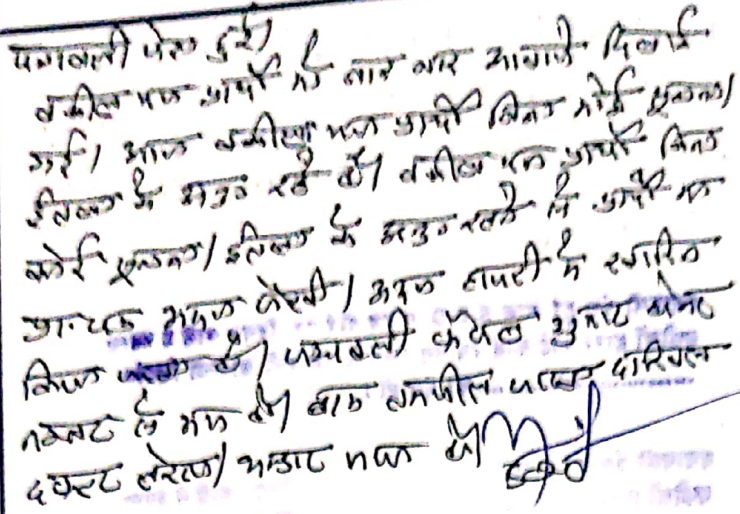 पत्रावली पेश हुई।
वकील मय प्रार्थी को बार बार आवाजे दिलाई
गई। आज वकील मय प्रार्थी बिना कोई सूचना/
ईतला के अनु रहे है। वकील मय प्रार्थी बिना
कोई सूचना/ ईतला के अनु रहने से प्रार्थी का
प्रा. पत्र अदम पेरवी/ अदम हाजरी मे खारिज
किया जाता है। पत्रावली फैसल शुमार होकर
नम्बर से कम हो। बाद तकमील दाखिल
दफ्तर होवे।